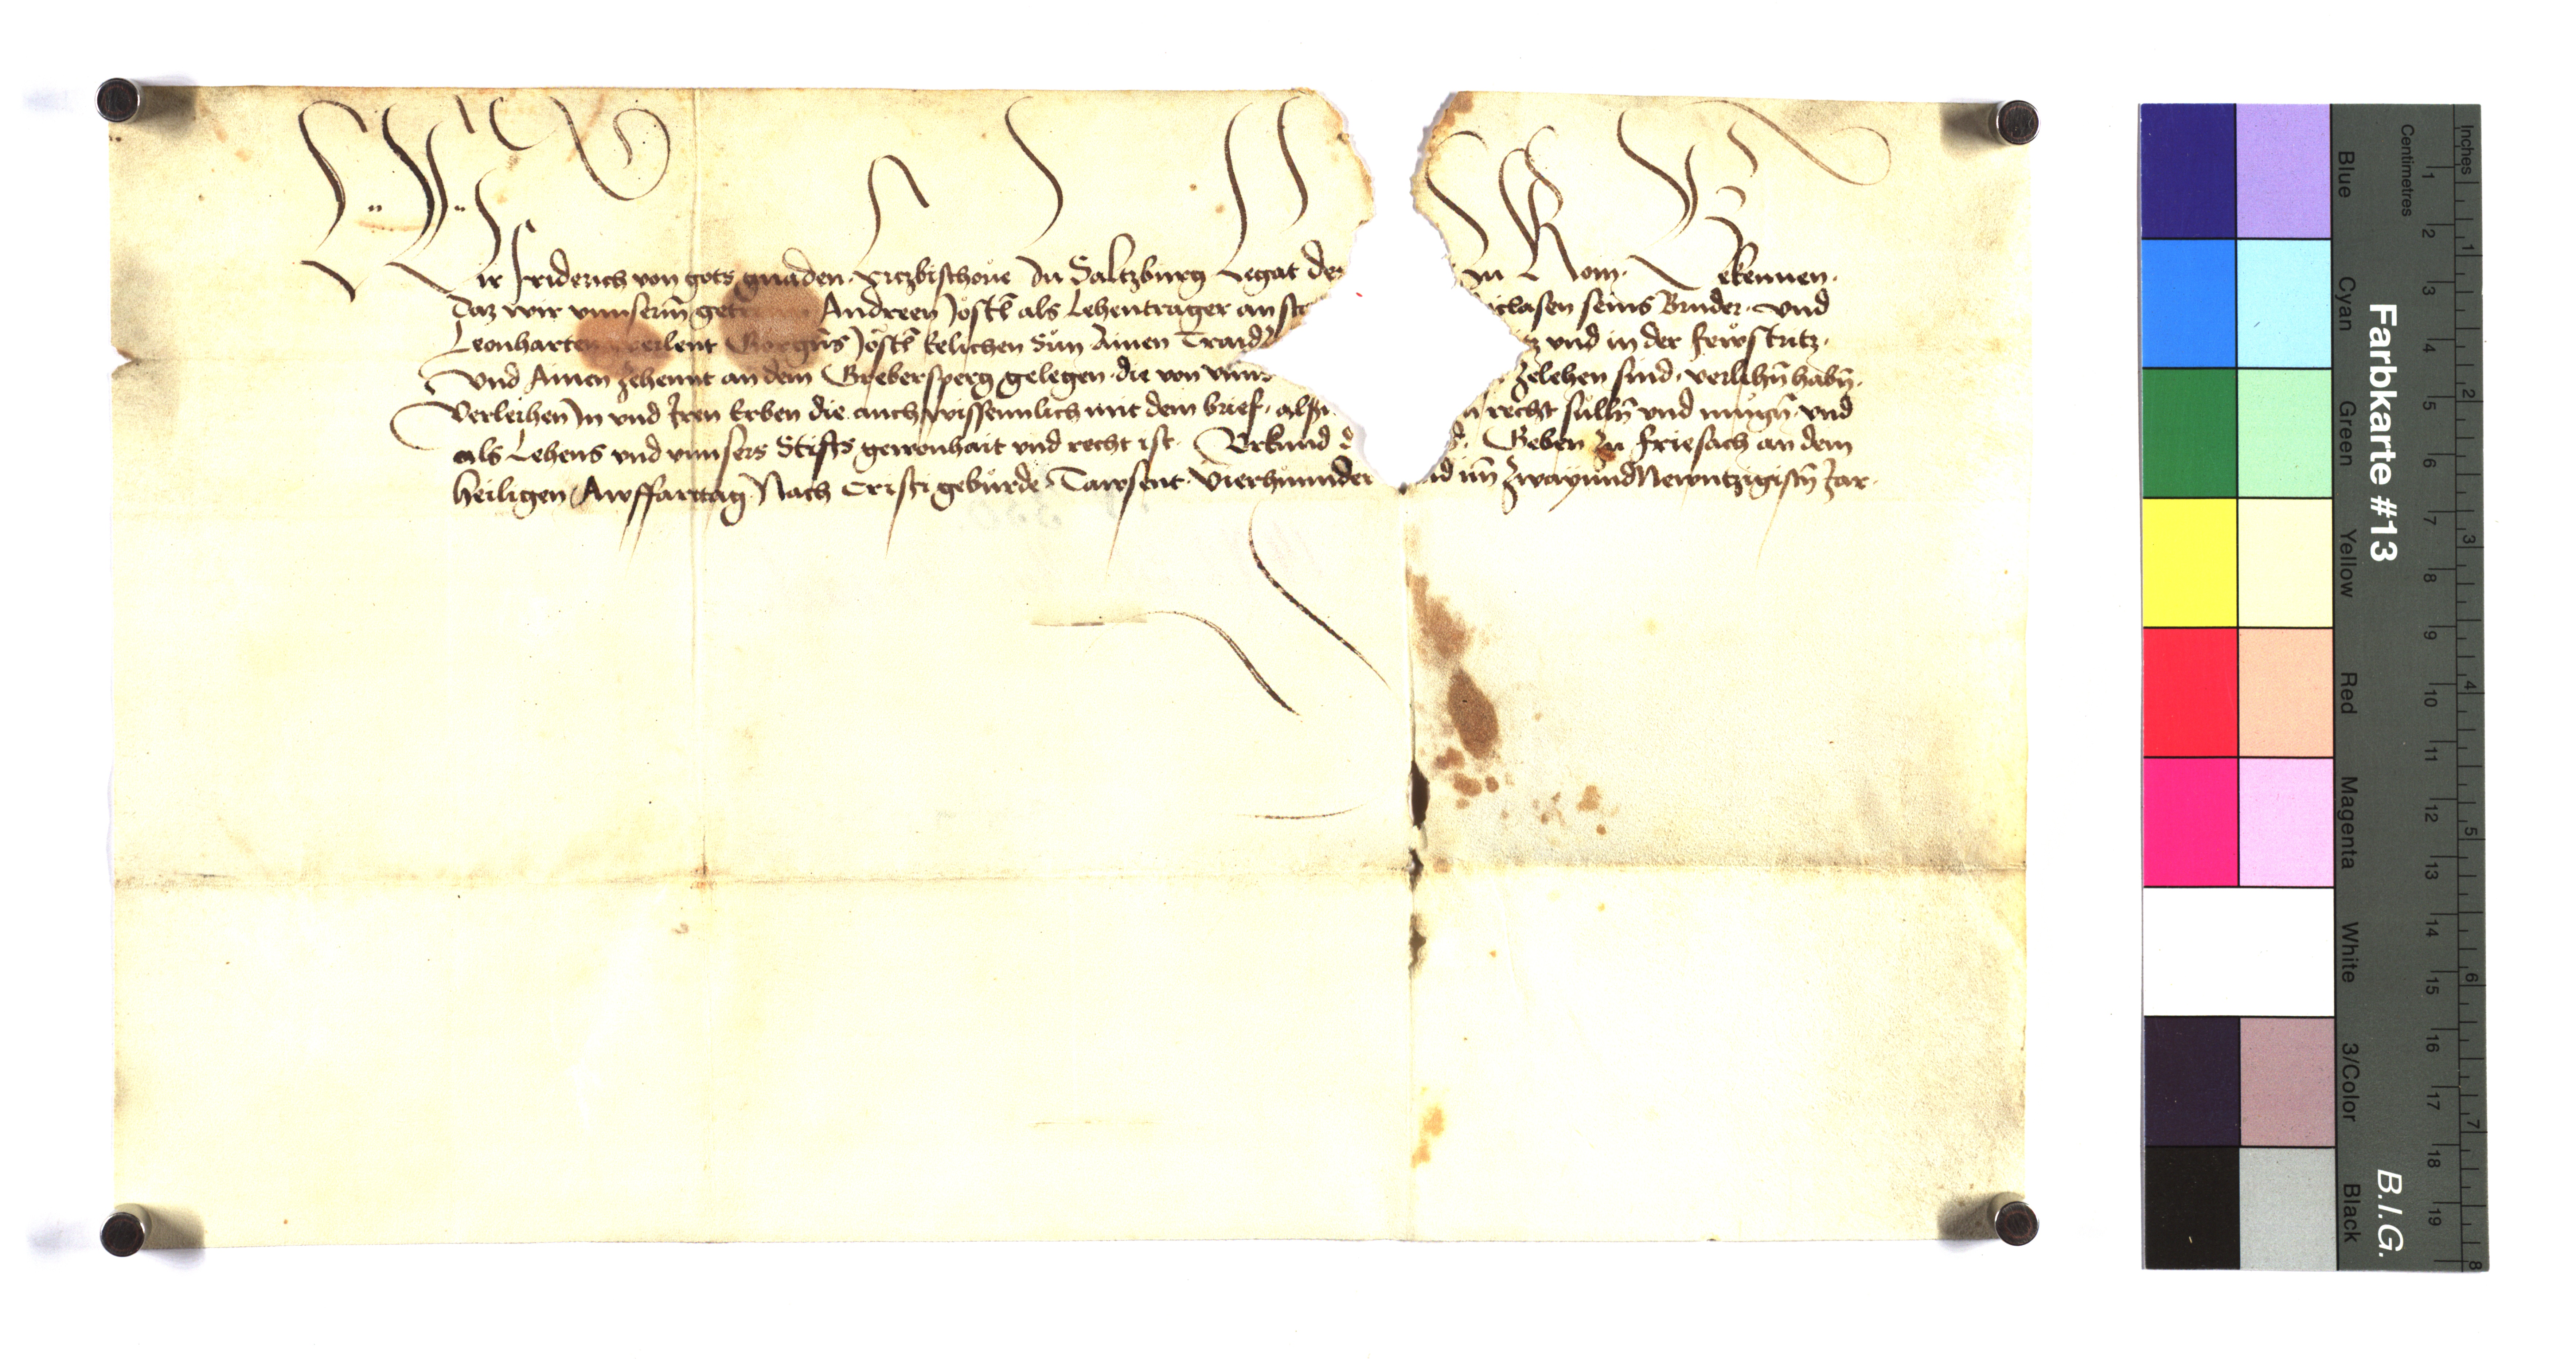 Wir Friderich von gots gnaden Ertzbischoue zu Saltzburg Legat des zu Rom Bekennen
Daz wir vnnserm̄ Andreen Jöstl als Lehentrager an seins Bruder vnd
Leonharten Görgn̄s Jöstl kelichen Sün Ainen Traid vnd in der Fewstritz
Vnd Ainen zehennt an dem Grebersperg gelegen die von vnns zelehen sind verlihn̄ habn̄
Verleihen In vnd Iren Erben die auch wissenntlich mit dem brief recht sülln̄ vnd mügn̄ vnd
als Lehens vnd vnnsers Stiffts gewonhait vnd recht ist Vrkund Geben zu Friesach an dem
Heiligen Awffarttag Nach Cristi gebürde Tawsent Vierhunder im̄ zwayundNewntzigistn̄ Jar
Farbkarte #13
B.I.G.
Inches
Centimetres
1 2 3 4 5 6 7 8 9 10 11 12 13 14 15 16 17 18 19
1 2 3 4 5 6 7 8
Blue
Cyan
Green
Yellow
Red
Magenta
White
3/Color
Black